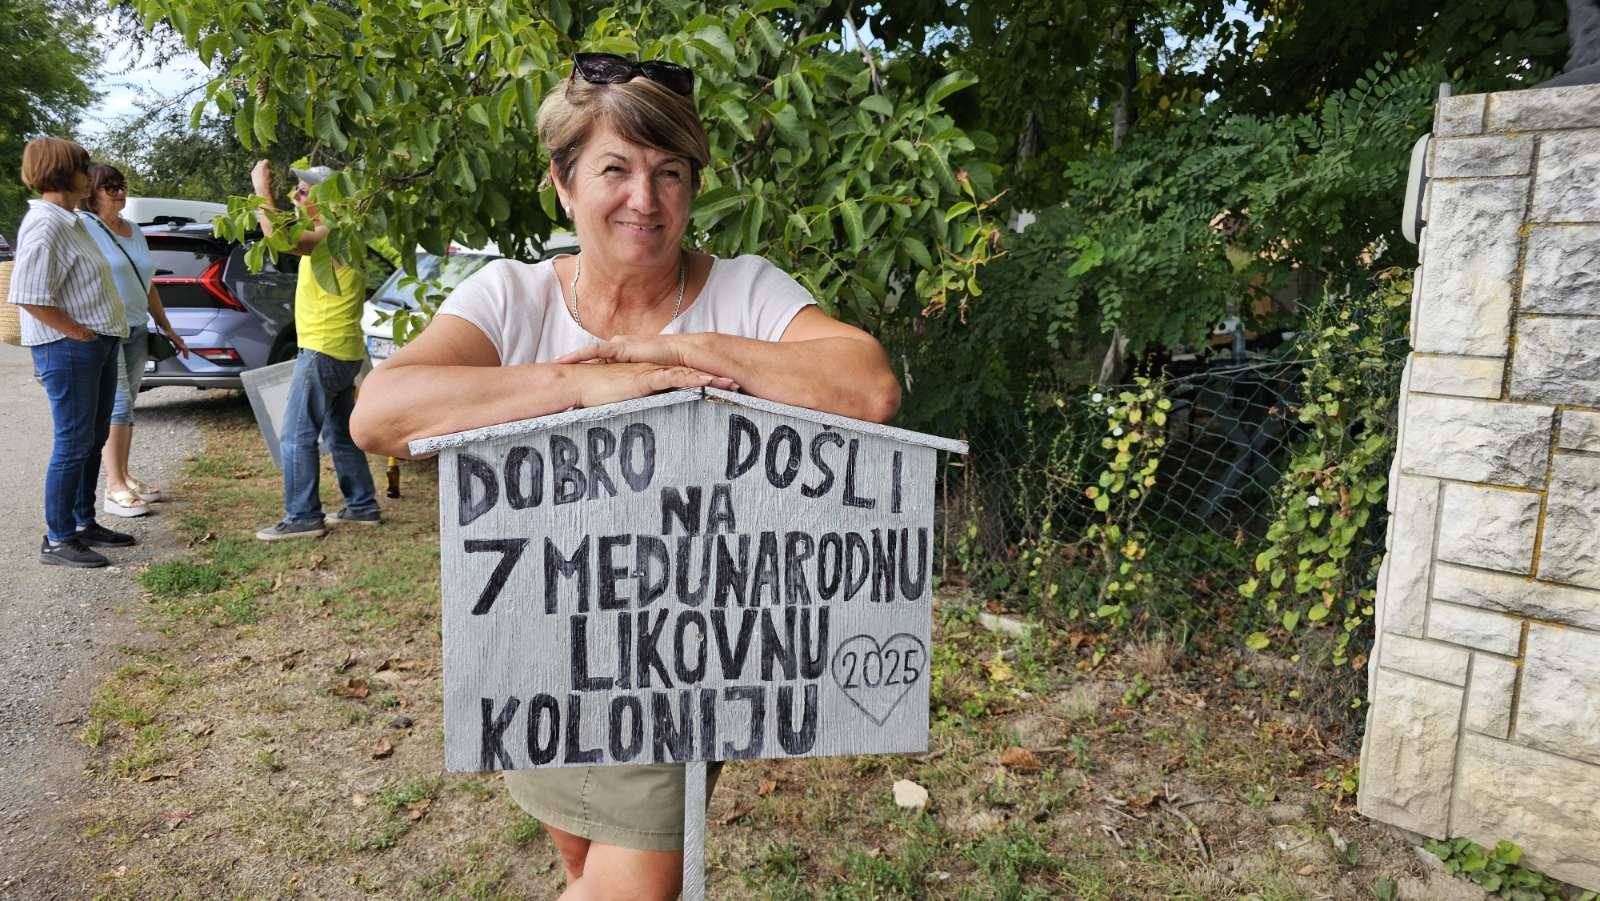 DOBRO DOŠLI
NA
7 MEDUNARODNU
LIKOVNU
KOLONIJU
2025